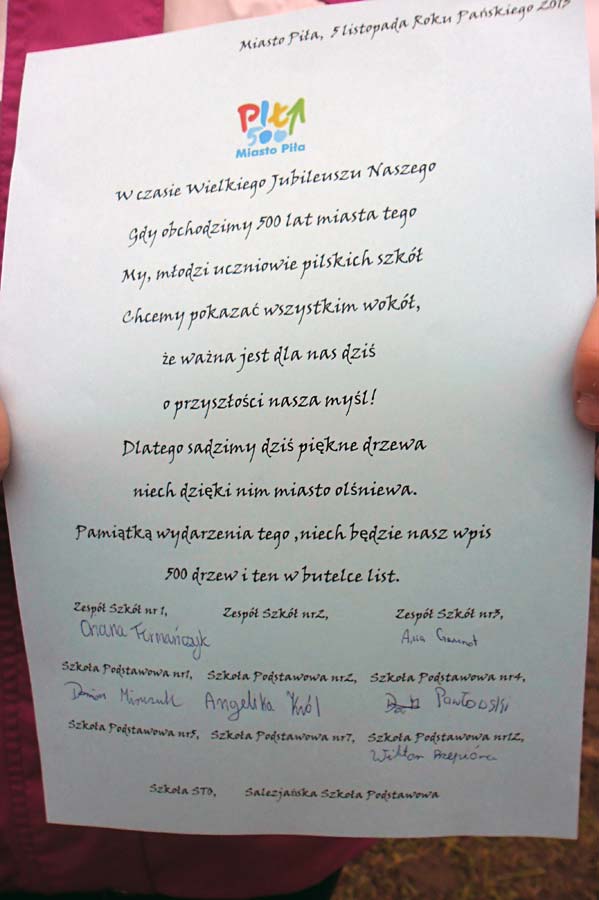 Miasto Piła, 5 listopada Roku Pańskiego 2013
Piła
500
Miasto Piła
W czasie Wielkiego Jubileuszu Naszego
Gdy obchodzimy 500 lat miasta tego
My, młodzi uczniowie pilskich szkół
Chcemy pokazać wszystkim wokół,
że ważna jest dla nas dziś
o przyszłości nasza myśl!
Dlatego sadzimy dziś piękne drzewa
niech dzięki nim miasto olśniewa.
Pamiątką wydarzenia tego ,niech będzie nasz wpis
500 drzew i ten w butelce list.
Zespół Szkół nr 1, Zespół Szkół nr2, Zespół Szkół nr3,
Furmańczyk
Szkoła Podstawowa nr1, Szkoła Podstawowa nr2, Szkoła Podstawowa nr4,
Angelika Król Pawłowski
Szkoła Podstawowa nr5, Szkoła Podstawowa nr7, Szkoła Podstawowa nr12,
Wiktor
Szkoła STO, Salezjańska Szkoła Podstawowa